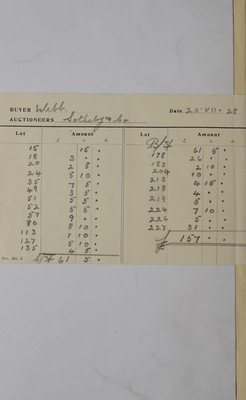 BUYER Webb. Date 20·VII·28
AUCTIONEERS Sotheby & Co
Lot Amount Lot Amount
£ s d £ s d
B/F 61 5 •
15 15 • 178 26 • •
18 3 • • 183 2 10 •
20 2 5 • 204 10 • •
24 5 10 • 213 4 15 •
35 7 5 • 218 4 • •
49 3 5 • 219 5 • •
51 5 5 • 224 7 10 •
52 5 5 • 226 5 • •
57 9 • • 227 31 • •
80 8 10 • £ 157 • •
113 1 10 •
127 5 10 •
135 5 •
61 5 •